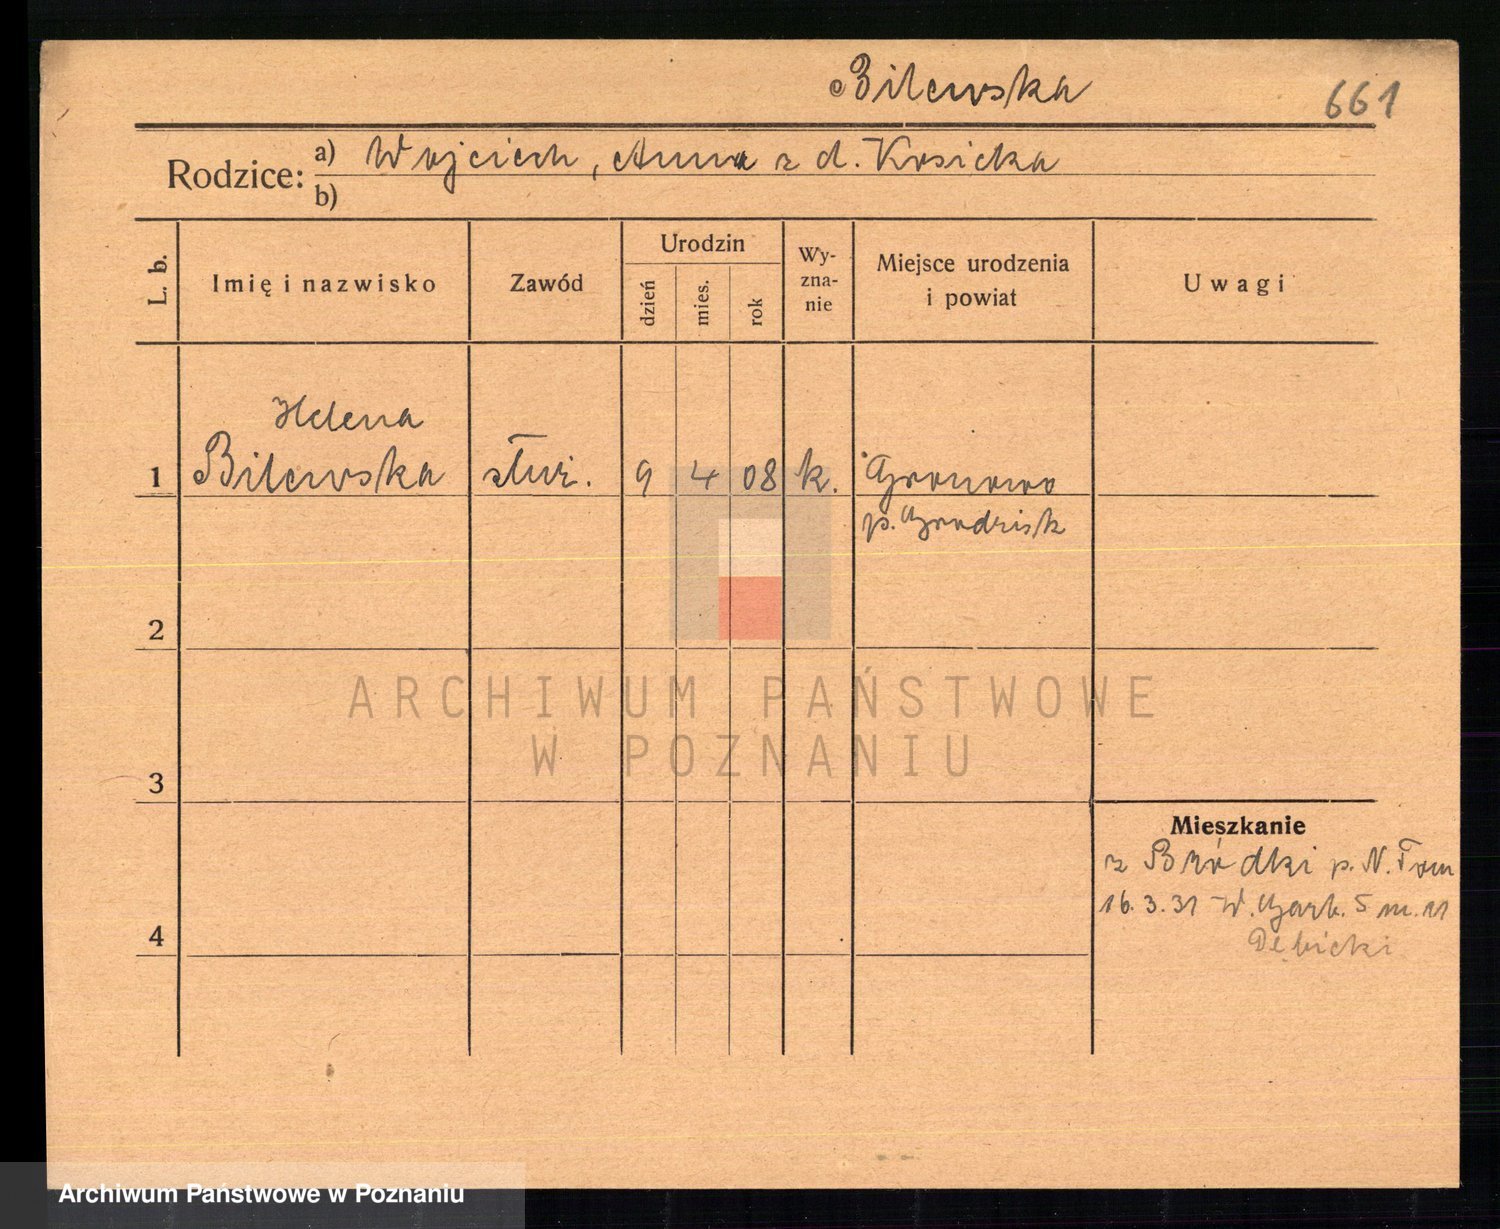 Bilewska 661
Rodzice: a) Wojciech, Anna z d. Kosicka
b)
L. b. Imię i nazwisko Zawód Urodzin dzień mies. rok Wyzna-nie Miejsce urodzenia i powiat Uwagi
Helena
1 Bilewska służ. 9 4 08 k. Gronowo
p. Grodzisk
2
ARCHIWUM PAŃSTWOWE
W POZNANIU
3
Mieszkanie
z Bródki p. N. Tom
16.3.31 W. Garb. 5 m. 11
4
Dębicki
Archiwum Państwowe w Poznaniu